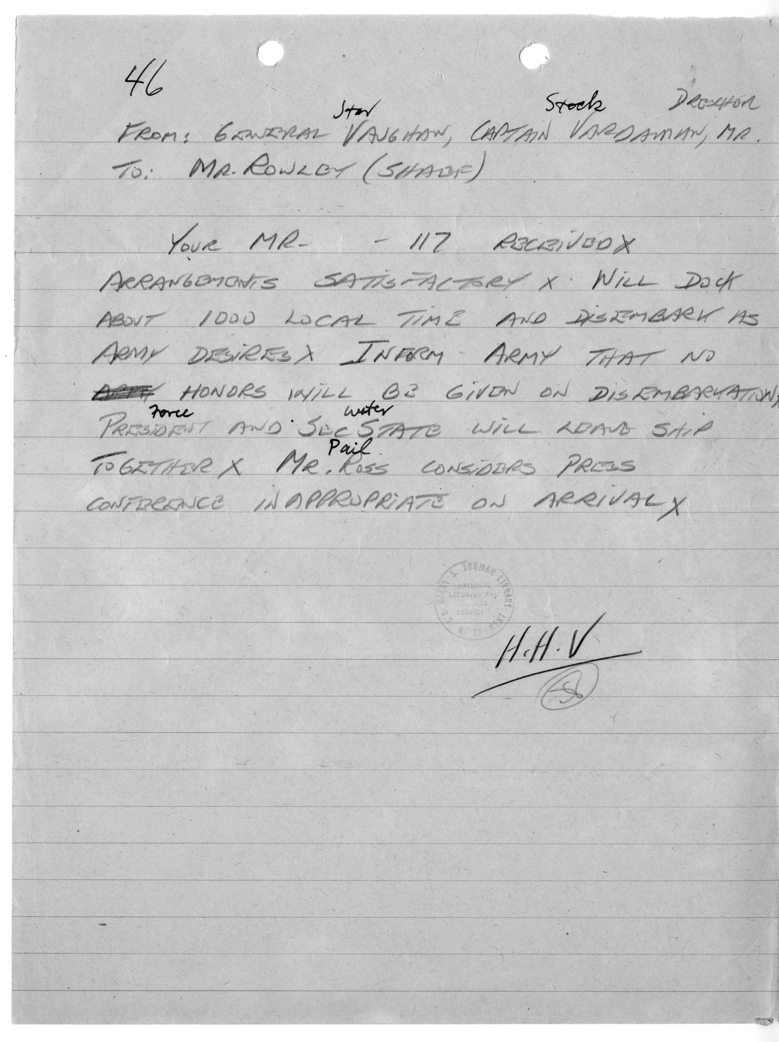 46
Star Stock Drexhor
FROM: GENERAL VAUGHAN, CAPTAIN VARDAMAN, MR.
TO: MR. ROWLEY (SHAEF)
YOUR MR- - 117 RECEIVED X
ARRANGEMENTS SATISFACTORY X WILL DOCK
ABOUT 1000 LOCAL TIME AND DISEMBARK AS
ARMY DESIRES X INFORM ARMY THAT NO
HONORS WILL BE GIVEN ON DISEMBARKATION,
Force water
PRESIDENT AND SEC STATE WILL LEAVE SHIP
Pail
TOGETHER X MR. ROSS CONSIDERS PRESS
CONFERENCE INAPPROPRIATE ON ARRIVAL X
HARRY S. TRUMAN LIBRARY
H.H.V